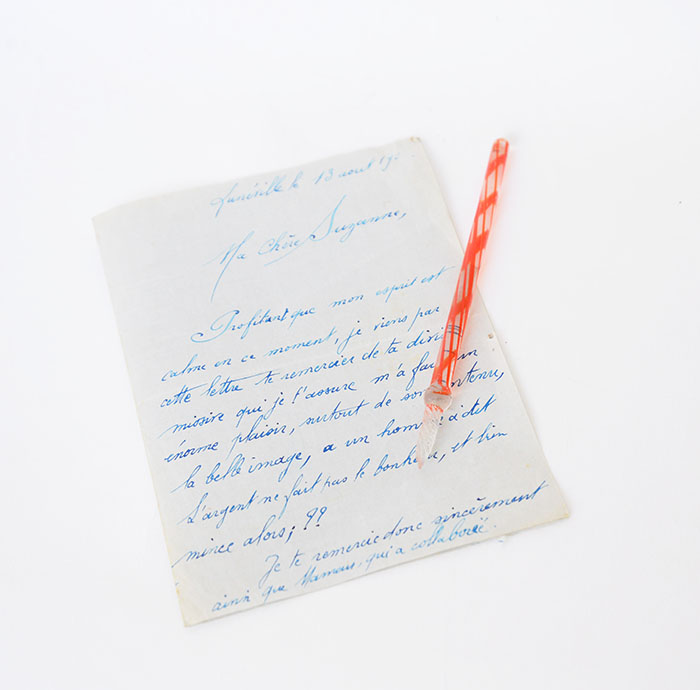 Lunéville le 13 aout 19
Ma chère Suzanne,
Profitant que mon esprit est
calme en ce moment, je viens par
cette lettre te remercier de ta
missire qui je t'assure m'a
énorme plaisir, surtout de son
la belle image, a un
L'argent ne fait pas le bonheur, et bien
mince alors; ??
Je te remercie donc sincèrement
ainsi que Maman, qui a collaboré.